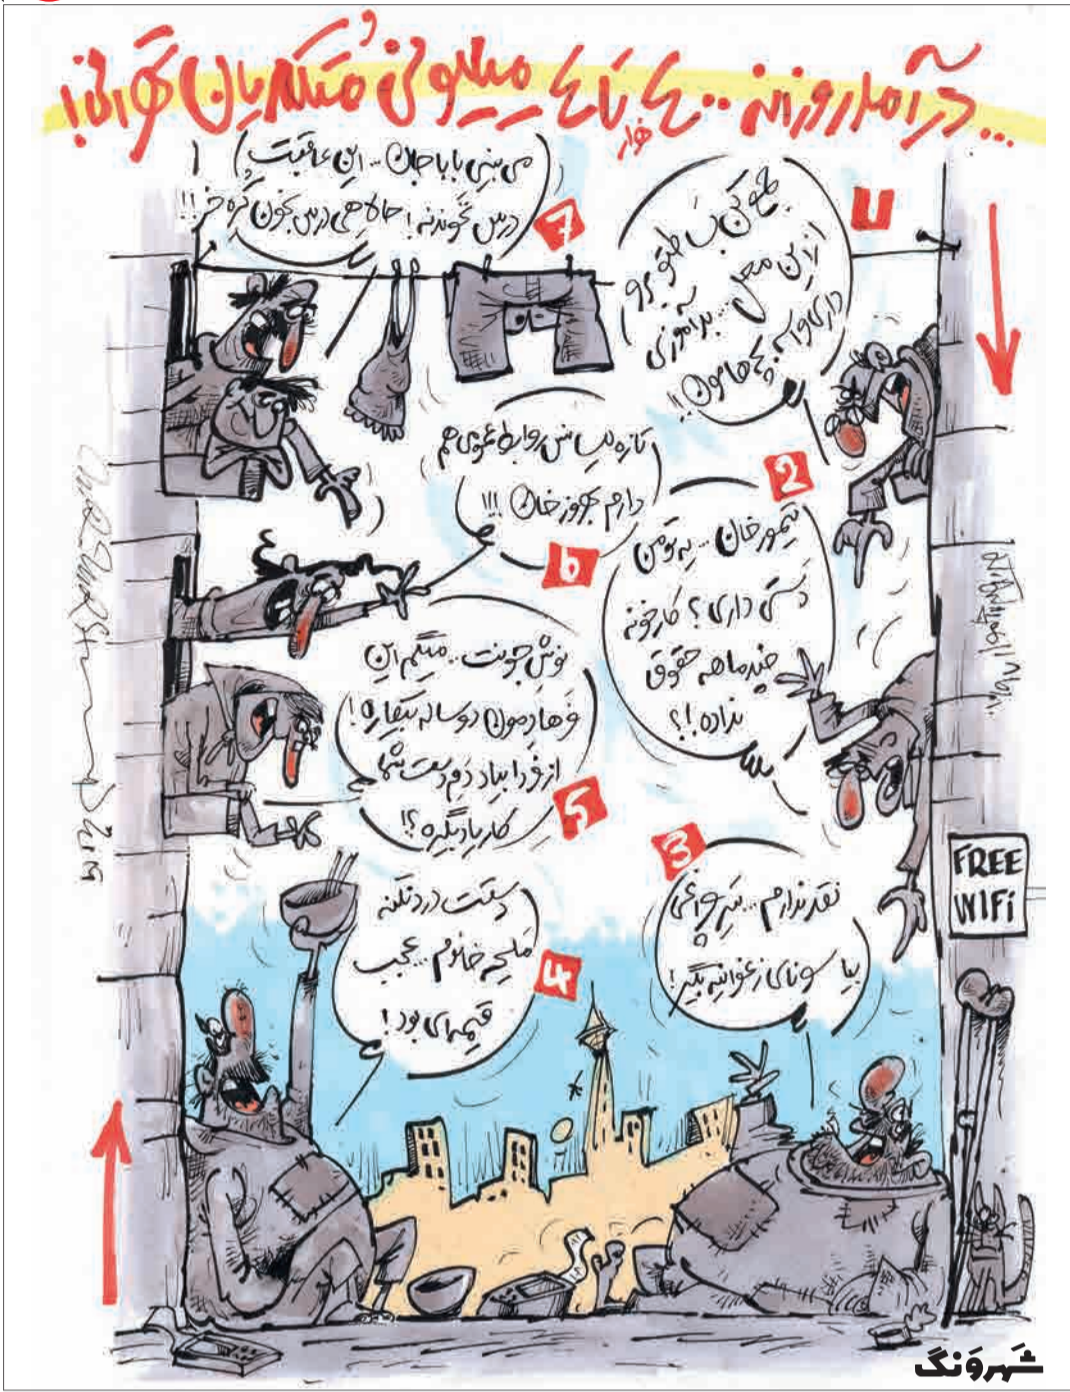 ...درآمد روزانه ۲۰۰ تا ۴۰۰ میلیونی مُتکدیان تهرانی!
جمع کن بساطتو برو
از این محل... بدآموزی
داری واسه بچه‌هامون!!
تیمورخان... یه تومن
دستی داری؟ کارخونه
چندماهه حقوق
نداده!؟
نقد ندارم... تیرچراغی
بیا سونای زعفرانیه بگیر!
دستت درد نکنه
ملیحه خانوم... عجب
قیمه‌ای بود!
نوش جونت... میگم این
فرهادمون دو ساله بیکاره!
از فردا بیاد دَم دست شما
کار یاد بگیره؟!
تازه لیسانس روابط عمومی هم
دارم بهروزخان!!!
می‌بینی باباجان... این عاقبت
درس نخوندنه! حالا هی درس نخون کُره خر!!
1
2
3
4
5
6
7
FREE
WIFI
شهرونگ